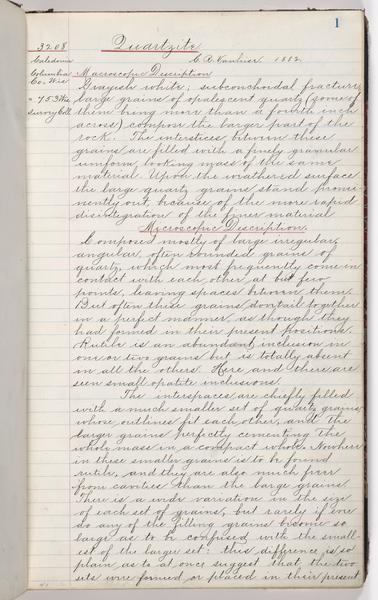 1
3208 Quartzite
Caledonia C.R. Vanhise 1882.
Columbia Macroscopic Description
Co. Wis Grayish white; subconchoidal fracture;
= 757 Wis large grains of opalescent quartz (some of
Survey Coll them being more than a fourth inch
across) compose the larger part of the
rock. The interstices between these
grains are filled with a finely granular
uniform, looking mass of the same
material. Upon the weathered surface
the large quartz grains stand promi-
nently out, because of the more rapid
disintegration of the finer material
Microscopic Description.
Composed mostly of large irregular,
angular, often rounded grains of
quartz, which most frequently come in
contact with each other at but few
points, leaving spaces between them.
But often these grains dovetail together
in a perfect manner, as though they
had formed in their present positions.
Rutile is an abundant inclusion in
one or two grains but is totally absent
in all the others. Here and there are
seen small apatite inclusions.
The interspaces are chiefly filled
with a much smaller set of quartz grains,
whose outlines fit each other, and the
larger grains perfectly cementing the
whole mass in a compact whole. Nowhere
in these smaller grains is to be found
rutile, and they are also much freer
from cavities than the large grains
There is a wide variation in the size
of each set of grains, but rarely if ever
do any of the filling grains become so
large as to be confused with the small-
est of the larger set: this difference is so
plain as to at once suggest that the two
sets were formed or placed in their present